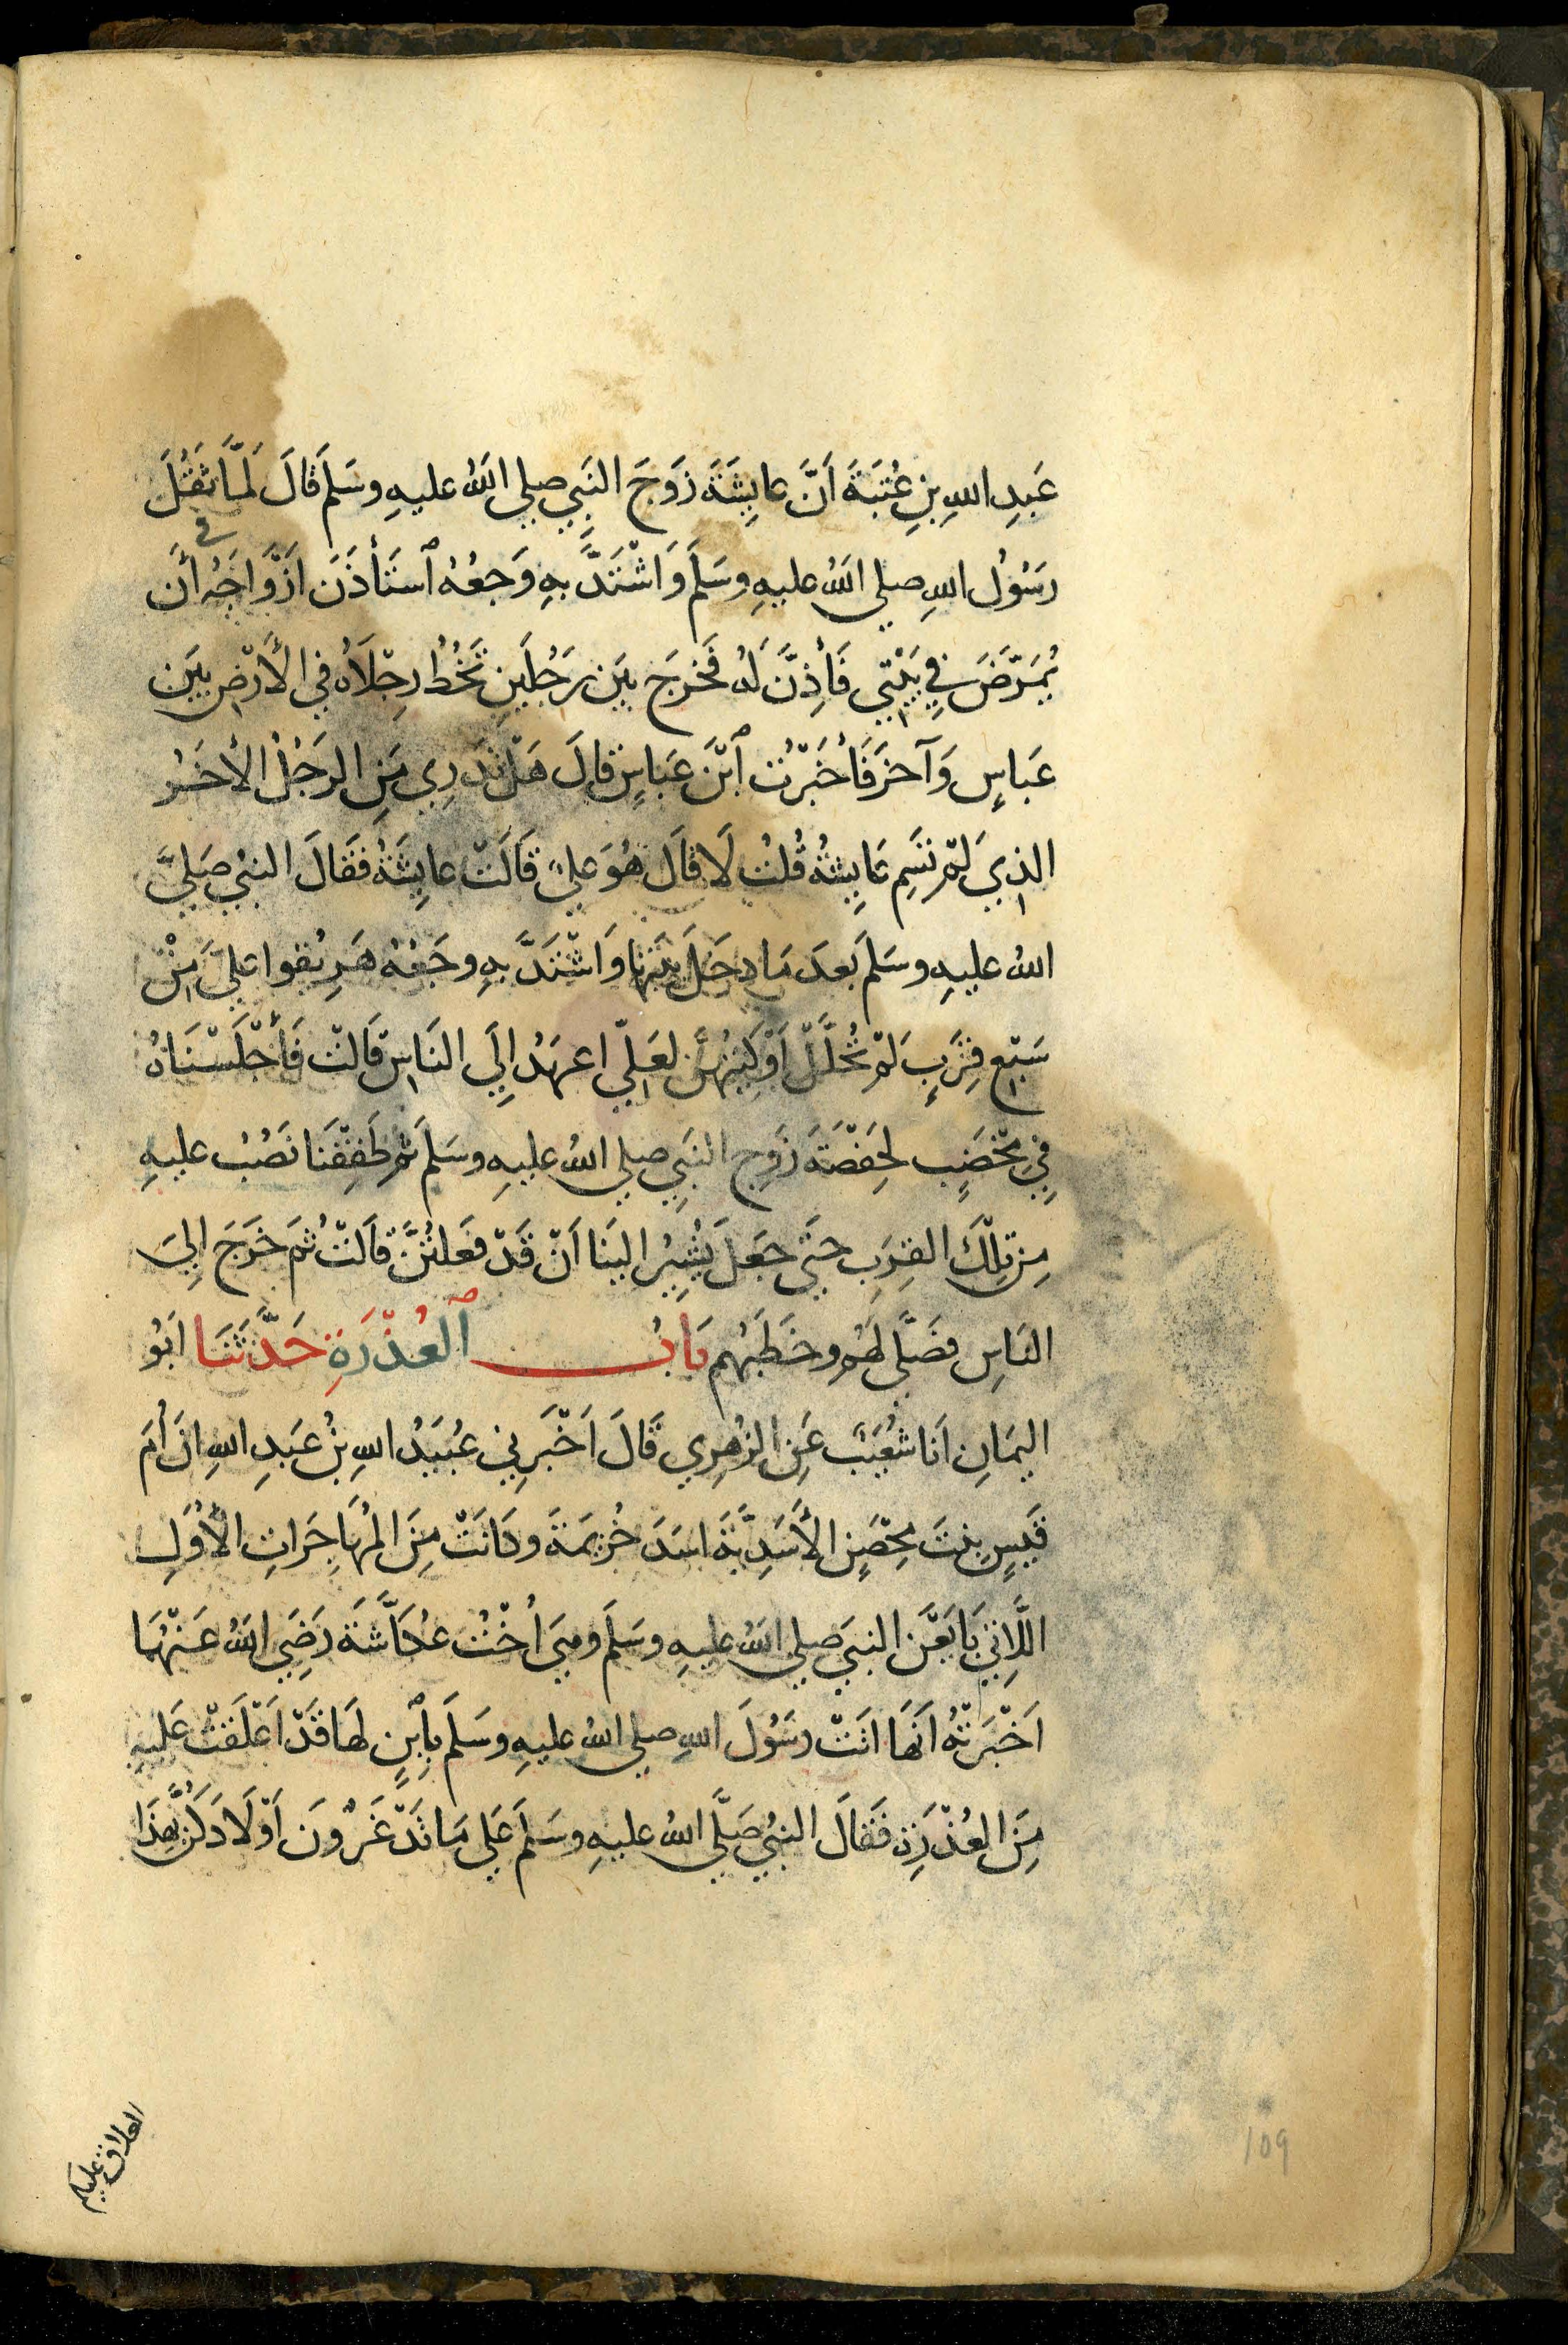 عَبدِ اللهِ بنِ عُتبَةَ اَنَّ عايِشَةَ زَوجَ النَبِي صلي اللهُ عليهِ وسَلَم قالَ لَمَّا ثَقُلَ
رسَوُل اللهِ صلي اللهُ عليهِ وسَلَم وَاشْتَدَّ بهِ وَجعُهُ ٱستَأذَنَ اَزوَاجَهُ أن
في
يُمَرّضَ في بَيْتي فَأذِنَّ لَهُ فَخرجَ بيَن رَجُلَينِ تَخُطُ رِجْلَاهُ في الأرْضِ بيَن
عَباسٍ وَآخرَ فَأخبَرْتُ ٱبْنَ عَباسٍ قالَ هَلْ تَدرِي مَنِ الرَجُلُ الأخَرُ
الذِي لَمْ تسَمِ عَايِشةُ قُلتُ لَا قَالَ هُوَ عليٌ قَالَتْ عايِشَةُ فَقَالَ النبيُ صَليَّ
اللهُ عليهِ وسَلَم بَعدَ مَا دخَلَ بيَتهَا وَاشْتَدَّ بهِ وجَعُهُ هَرِيقوا عليَّ مِنْ
سَبْعِ قِرَبٍ لَمْ تُحلَلْ اَوْكِيَتُهُنَّ لعَلِّي اعهَدُ اِلَي النَاسِ قَالتْ فَأجْلَسْنَاهُ
فِي مِخْضَبٍ لِحَفْصَةَ زَوجِ النَبِي صلي اللهُ عليهِ وسَلَم ثمَ طَفِقْنَا نَصُبُ عليهِ
مِن تِلْكَ القِرَبِ حَتَي جعَلَ يُشِيرُ اليَنا اَنْ قَدْ فعَلتُنَّ قَالَتْ ثُمَ خَرَجَ اِلَي
النَاسِ فصَلَّى لَهُم وخَطَبَهُم بَابُ ٱلعُذْرَةِ حَدَّثَنَا ابَوُ
اليَمَانِ اَنا شُعَيْبٌ عَنِ الزُهرِي قَالَ اَخْبَرَني عُبَيَدُ اللهِ بنُ عَبدِ اللهِ انَ أمَ
قَيسٍ بنتَ مِحْصَنٍ الأسَدِيَّةَ اسَدَ خُزيمَةَ وكَانَتْ مِنَ المُهَاجَراتِ الأُوَلِ
اللَّاتِي بَايَعْنَ النبيَ صلي اللهُ عليهِ وسَلَم وهِيَ اُخْتُ عُكاَّشَةَ رَضِيَ اللهُ عَنْهُما
اَخْبَرَتْهُ اَنهَا اتَتْ رسَوُلَ اللهِ صلي اللهُ عليهِ وسَلَم بِٱبْنٍ لهَا قَدْ اَعْلَقَتْ عَليهِ
مِنَ العُذْرَةِ فَقَالَ النبيُ صَلَّى اللهُ عليهِ وسَلَم عَلي مَا تَدْغَرْونَ اَوْلَادَكُنَّ بهَذَا
العلاق عليكم
109